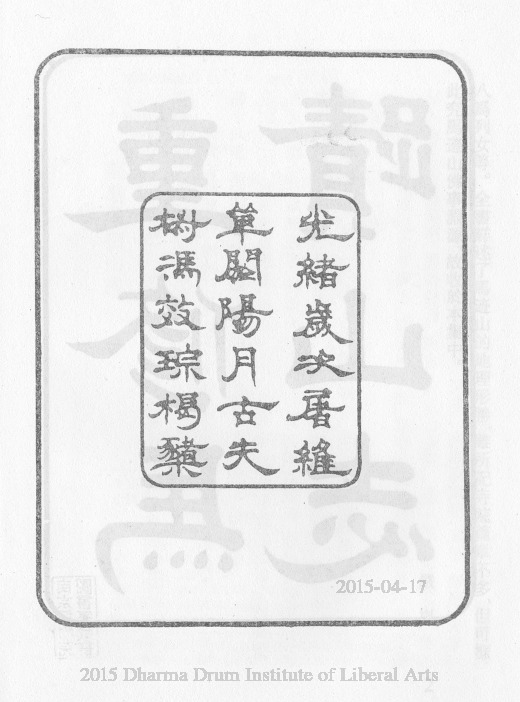 光緒歲次屠維
單閼陽月古夫
椒馮效琮楬櫫
2015-04-17
2015 Dharma Drum Institute of Liberal Arts